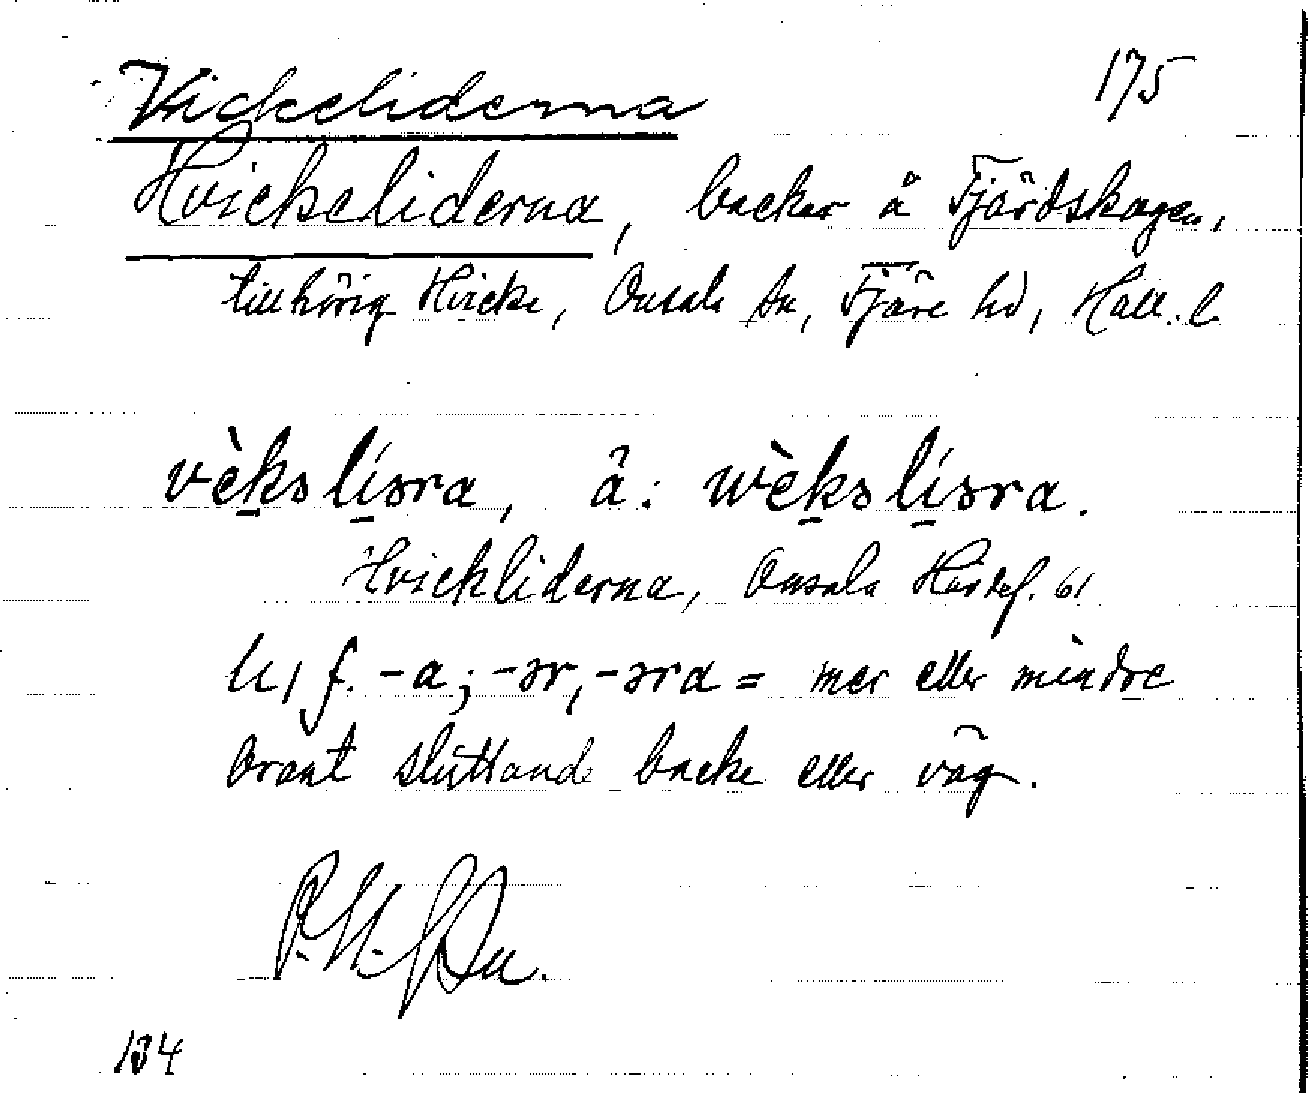 175
Vickeliderna
Hvickeliderna, backar å Fjärdskagen,
tillhörig Hvicke, Onsala sn, Fjäre hd, Hall. l.
vèkəlíəra, ä: wèkəlíəra.
Hvickliderna, Onsala Härdef. 61
li, f. -a; -ər, -əra = mer eller mindre
brant sluttande backe eller väg.
134